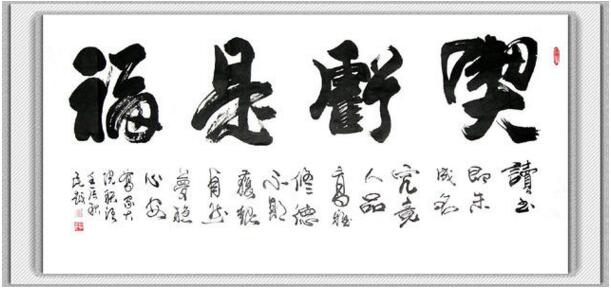 喫虧是福
讀書
即未
成名
究竟
人品
高雅
修德
不期
獲報
自然
夢穩
心安